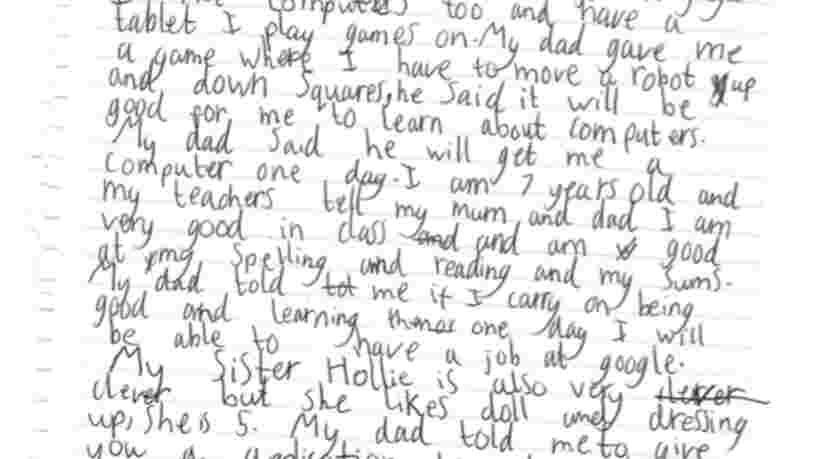 computers too and have a
tablet I play games on. My dad gave me
a game where I have to move a robot up
and down Squares, he Said it will be
good for me to learn about Computers.
My dad Said he will get me a
Computer one day. I am 7 years old and
my teachers tell my mum and dad I am
very good in class and and am good
at my Spelling and reading and my Sums.
My dad told tot me if I carry on being
good and learning one day I will
be able to have a job at google.
My Sister Hollie is also very clever
clever but she likes doll and dressing
up, She is 5. My dad told me to give
you